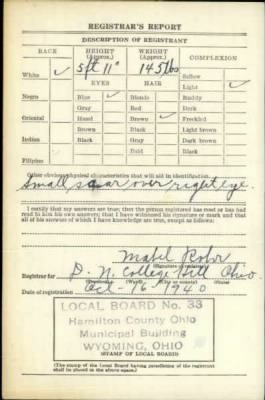 REGISTRAR'S REPORT
DESCRIPTION OF REGISTRANT
RACE HEIGHT (Approx.) WEIGHT (Approx.) COMPLEXION
White ✓ 5 ft 11" 145 lbs Sallow
EYES HAIR Light ✓
Negro Blue ✓ Blonde Ruddy
Gray Red Dark
Oriental Hazel Brown ✓ Freckled
Brown Black Light brown
Indian Black Gray Dark brown
Bald Black
Filipino
Other obvious physical characteristics that will aid in identification
Small scar over right eye.
I certify that my answers are true; that the person registered has read or has had
read to him his own answers; that I have witnessed his signature or mark and that
all of his answers of which I have knowledge are true, except as follows:
Mabel Rohr
(Signature of registrar)
Registrar for D. N. College Hill Ohio
(Precinct) (Ward) (City or county) (State)
Date of registration Oct - 16 - 1940
LOCAL BOARD No. 33
Hamilton County Ohio
Municipal Building
WYOMING, OHIO
(STAMP OF LOCAL BOARD)
(The stamp of the Local Board having jurisdiction of the registrant
shall be placed in the above space.)